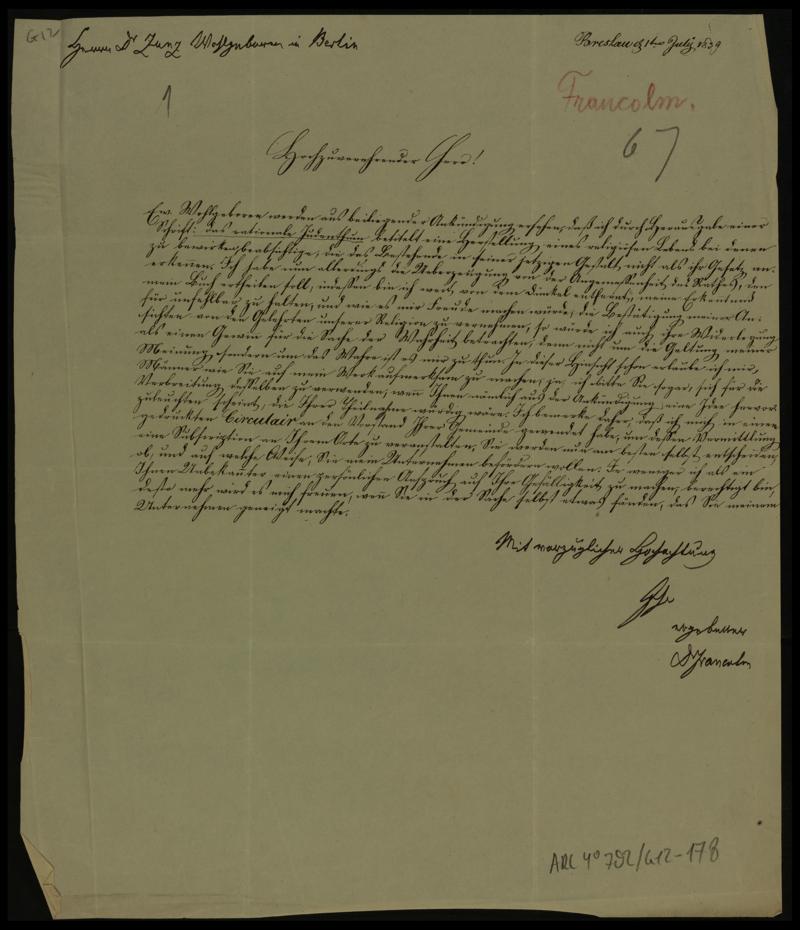 G12
Herrn Dr Zunz Wohlgeboren in Berlin
Breslau d 1ten July 1839
1
Francolm.
67
Hochzuverehrender Herr!
Ew. Wohlgeboren werden aus beiliegender Ankündigung ersehen, daß ich durch Herausgabe einer
Schrift: das rationale Judenthum betitelt eine Herstellung eines religiösen Lebens bei denen
zu bewirken beabsichtige, die das Bestehende in seiner jetzigen Gestalt nicht als ihr Gesetz an-
erkennen. Ich habe nun allerdings die Ueberzeugung von der Angemessenheit des Rathes, den
mein Buch ertheilen soll, indessen bin ich weit von dem Dünkel entfernt, meine Erkenntniß
für unfehlbar zu halten, und wie es mir Freude machen würde, die Bestätigung meiner An-
sichten von den Gelehrten unserer Religion zu vernehmen, so würde ich auch ihre Widerlegung
als einen Gewin für die Sache der Wahrheit betrachten, denn nicht um die Geltung meiner
Meinung, sondern um das Wahre ist es mir zu thun. In dieser Hinsicht schon erlaube ich mir,
Männer wie Sie auf mein Werk aufmerksam zu machen, ja, ich bitte Sie sogar, sich für die
Verbreitung desselben zu verwenden, wen Ihnen nämlich aus der Ankündigung eine Idee hervor-
zuleuchten scheint, die Ihrer Theilnahme würdig wäre. Ich bemerke daher, daß ich mich in einem
gedruckten Circulair an den Vorstand Ihrer Gemeinde gewendet habe, um dessen Vermittlung
eine Subscription an Ihrem Orte zu veranstalten. Sie werden nun am besten selbst entscheiden,
ob, und auf welche Weise, Sie mein Unternehmen befördern wollen. Je weniger ich als ein
Ihnen Unbekanter einen persönlichen Anspruch auf Ihre Gefälligkeit zu machen, berechtigt bin,
desto mehr wird es mich freuen, wen Sie in der Sache selbst etwas fänden, das Sie meinem
Unternehmen geneigt machte.
Mit vorzüglicher Hochachtung
Ihr
ergebener
Dr Francolm
ARC 4° 792/G12-178